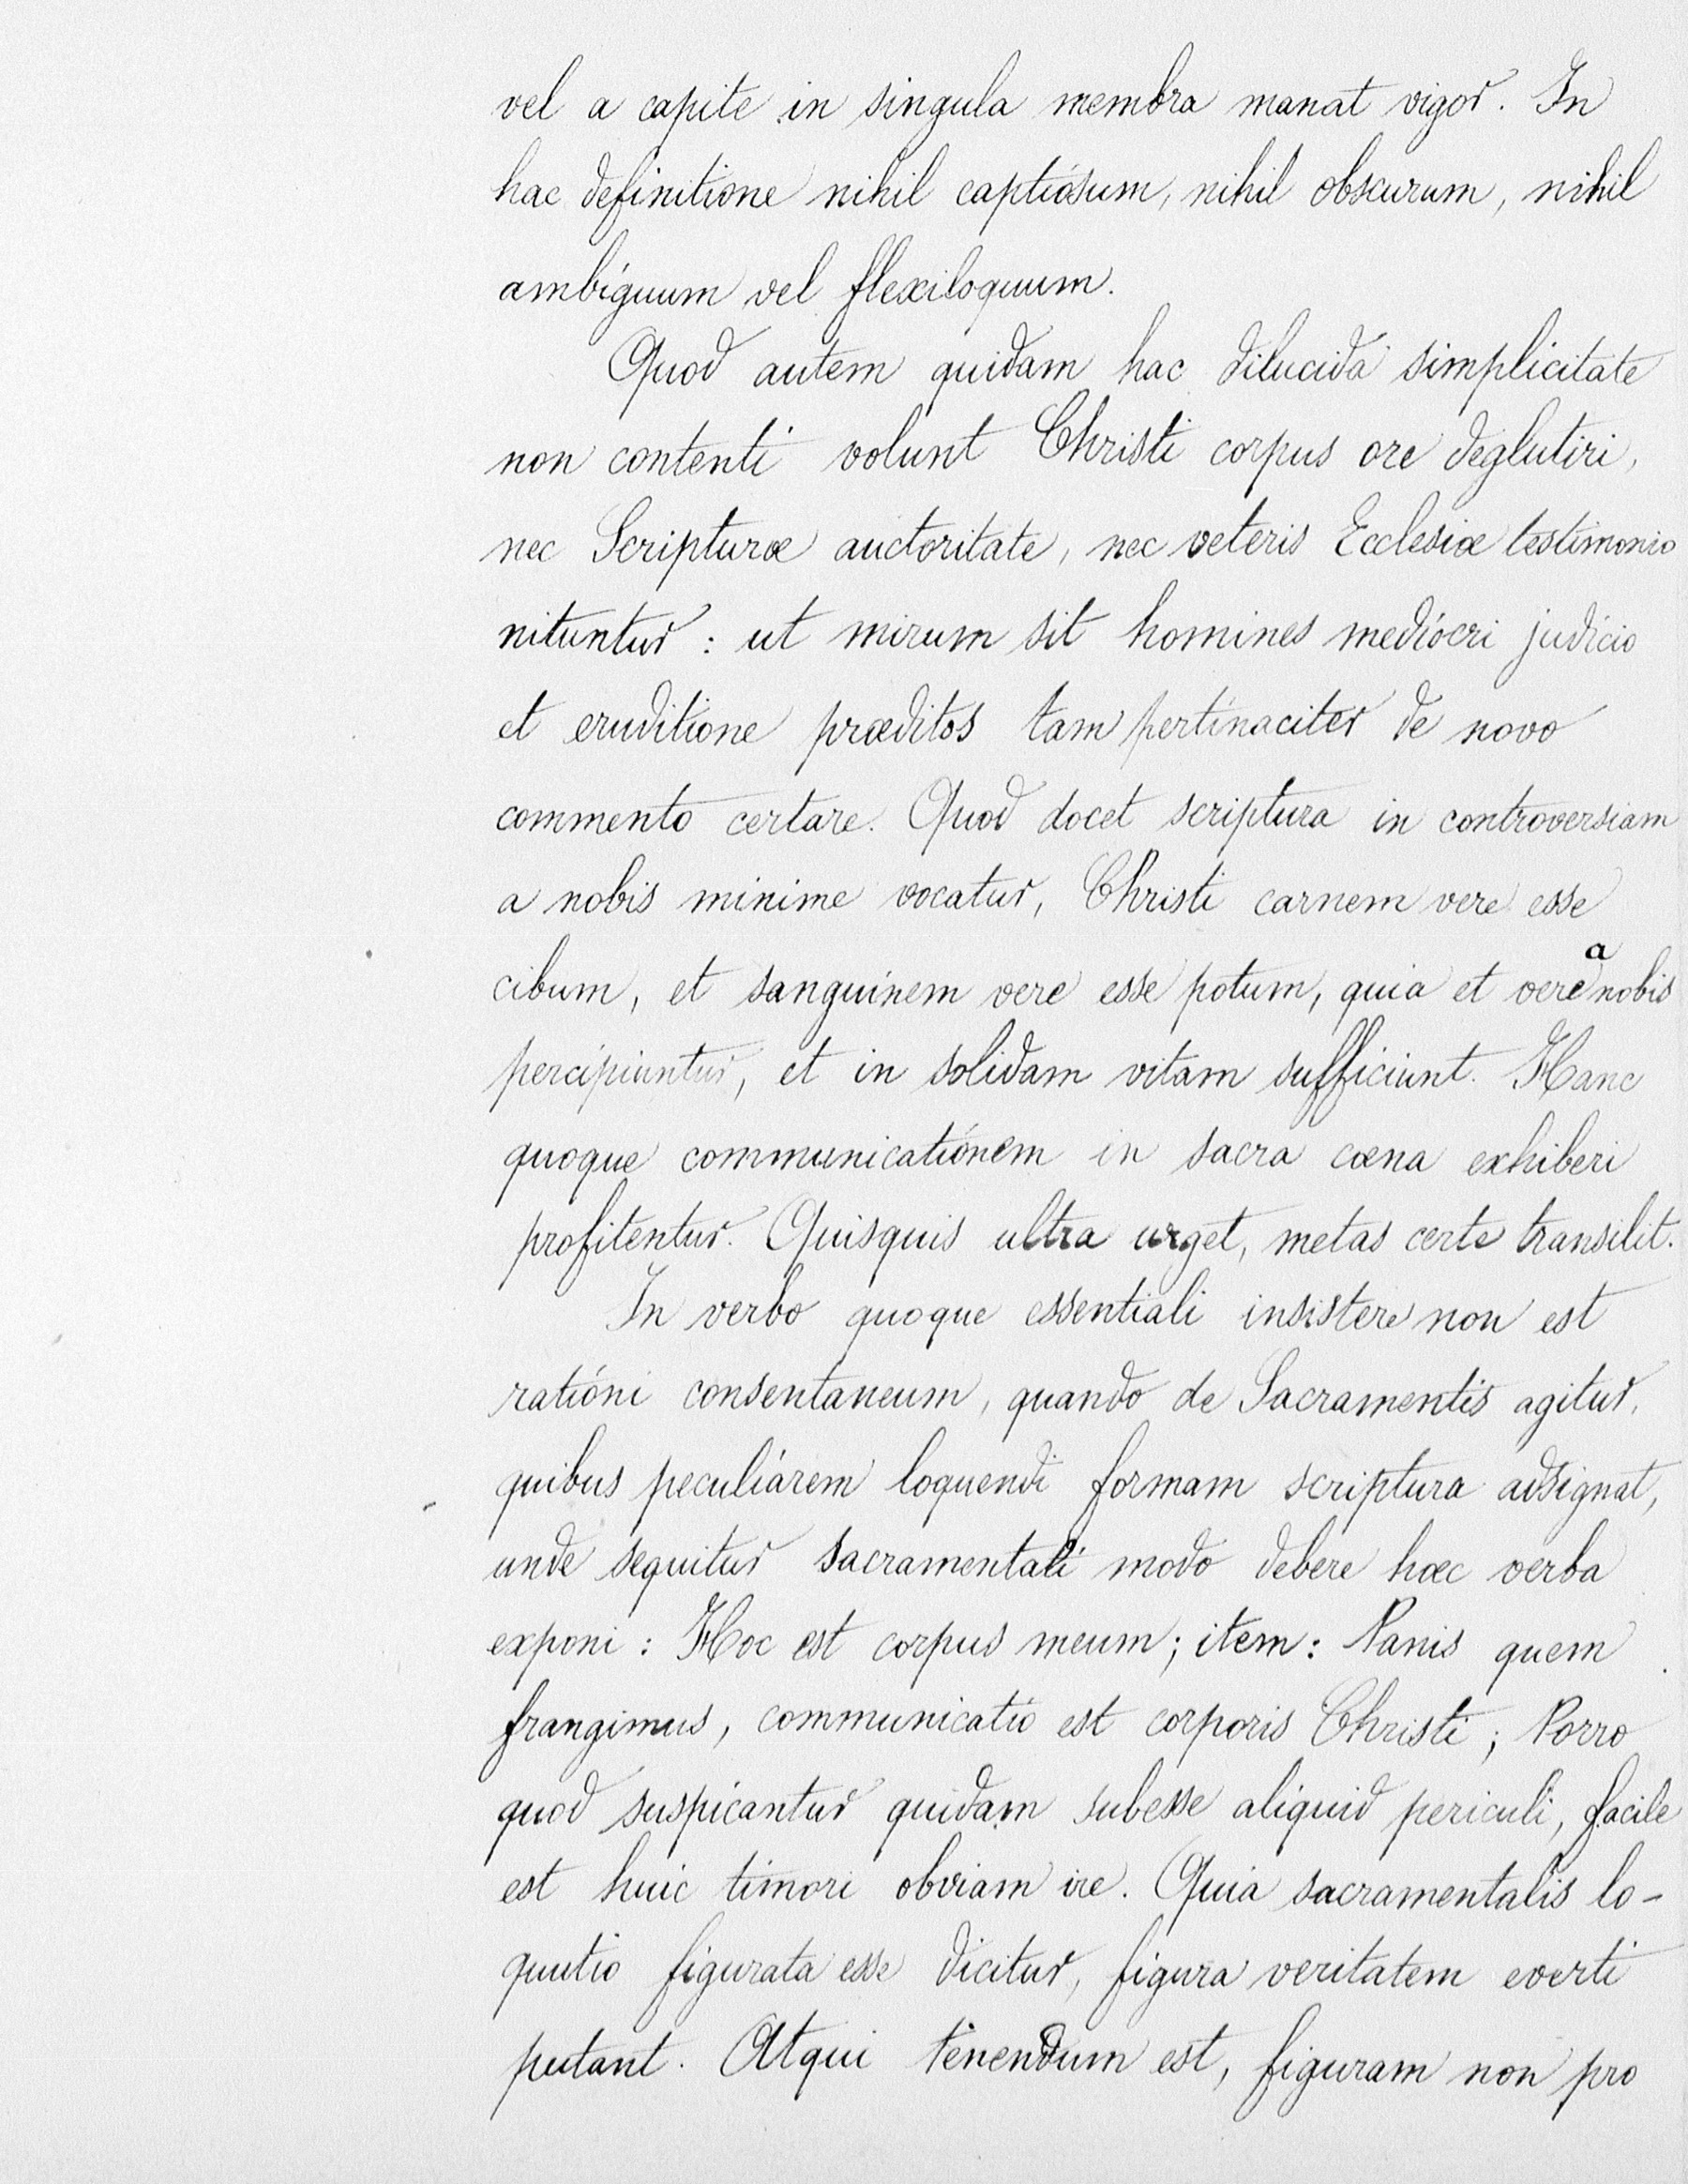 vel a capite in singula membra manat vigor. In
hac definitione nihil captiosum, nihil obscurum, nihil
ambiguum vel flexiloquum.
Quod autem quidam hac dilucida simplicitate
non contenti volunt Christi corpus ore deglutiri,
nec Scripturæ auctoritate, nec veteris Ecclesiæ testimonio
nituntur : ut mirum sit homines mediocri judicio
et eruditione præditos tam pertinaciter de novo
commento certare. Quod docet scriptura in controversiam
a nobis minime vocatur, Christi carnem vere esse
cibum, et sanguinem vere esse potum, quia et vere a nobis
percipiuntur, et in solidam vitam sufficiunt. Hanc
quoque communicationem in sacra cœna exhiberi
profitentur. Quisquis ultra urget, metas certe transilit.
In verbo quoque essentiali insistere non est
rationi consentaneum, quando de Sacramentis agitur,
quibus peculiarem loquendi formam scriptura adsignat,
unde sequitur sacramentali modo debere hæc verba
exponi : Hoc est corpus meum; item : Panis quem
frangimus, communicatio est corporis Christi; Porro
quod suspicantur quidam subesse aliquid periculi, facile
est huic timori obviam ire. Quia sacramentalis lo-
quutio figurata esse dicitur, figura veritatem everti
putant. Atqui tenendum est, figuram non pro